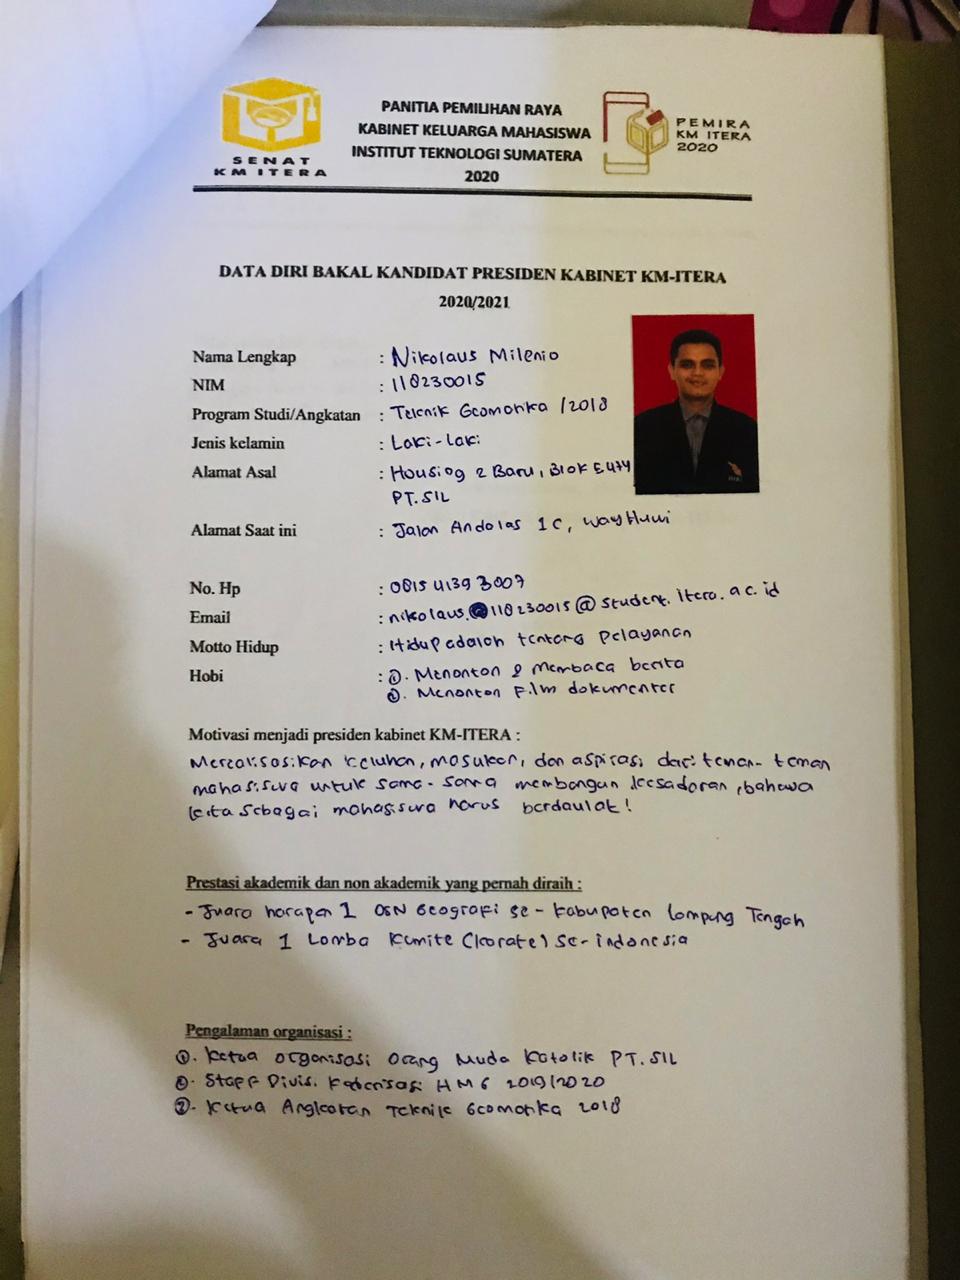 SENAT
KM ITERA
PANITIA PEMILIHAN RAYA
KABINET KELUARGA MAHASISWA
INSTITUT TEKNOLOGI SUMATERA
2020
PEMIRA
KM ITERA
2020
DATA DIRI BAKAL KANDIDAT PRESIDEN KABINET KM-ITERA
2020/2021
Nama Lengkap : Nikolaus Milenio
NIM : 118230015
Program Studi/Angkatan : Teknik Geomatika / 2018
Jenis kelamin : Laki-laki
Alamat Asal : Housing 2 Baru, Blok E
PT. SIL
Alamat Saat ini : Jalan Andalas 1C, Way Huwi
No. Hp : 0815 4139 3007
Email : nikolaus.118230015@student.itera.ac.id
Motto Hidup : Hidup adalah tentang pelayanan
Hobi : 1. Menonton & membaca berita
2. Menonton Film dokumenter
Motivasi menjadi presiden kabinet KM-ITERA :
Merealisasikan keluhan, masukan, dan aspirasi dari teman-teman
mahasiswa untuk sama-sama membangun kesadaran, bahwa
kita sebagai mahasiswa harus berdaulat!
Prestasi akademik dan non akademik yang pernah diraih :
- Juara harapan 1 OSN Geografi se-kabupaten Lampung Tengah
- Juara 1 Lomba Kumite (karate) se-indonesia
Pengalaman organisasi :
1. Ketua organisasi Orang Muda Katolik PT. SIL
2. Staff Divisi Kaderisasi HMG 2019/2020
3. Ketua Angkatan Teknik Geomatika 2018